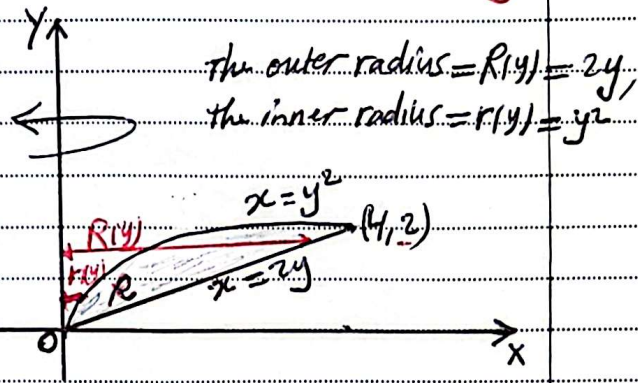 Y
The outer radius = R(y) = 2y,
the inner radius = r(y) = y²
x = y²
(4,2)
R(y)
r(y)
R
x = 2y
O
X